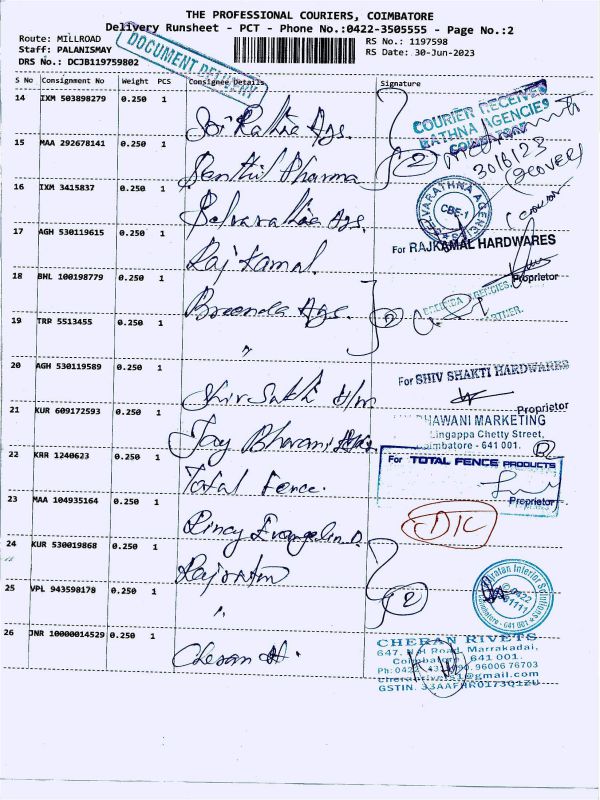 THE PROFESSIONAL COURIERS, COIMBATORE
Delivery Runsheet - PCT - Phone No.:0422-3505555 - Page No.:2
Route: MILLROAD
RS No.: 1197598
Staff: PALANISMAY
RS Date: 30-Jun-2023
DRS No.: DCJB119759802
DOCUMENT DELIVERY
S No Consignment No Weight PCS Consignee Details Signature
14 IXM 503898279 0.250 1 Sri Rathna Ags.
COURIER RECEIVED
RATHNA AGENCIES
COIMBATORE
15 MAA 292678141 0.250 1 Senthil Pharma
2
30/6/23
16 IXM 3415837 0.250 1 Selvarathna Ags.
SELVARATHNA AGENCIES
CBE-1
17 AGH 530119615 0.250 1 Rajkamal.
For RAJKAMAL HARDWARES
Proprietor
18 BHL 100198779 0.250 1 Breenda Ags.
AGENCIES,
PARTNER.
19 TRR 5513455 0.250 1 "
2
20 AGH 530119589 0.250 1 Shiv Sakthi H/m
For SHIV SHAKTI HARDWARES
Proprietor
21 KUR 609172593 0.250 1 Jay Bhavani
BHAWANI MARKETING
Lingappa Chetty Street,
Coimbatore - 641 001.
22 KRR 1240623 0.250 1 Total Fence.
For TOTAL FENCE PRODUCTS
Proprietor
23 MAA 104935164 0.250 1 Rincy Evangelin D.
DTC
24 KUR 530019868 0.250 1 Rajratan
25 VPL 943598178 0.250 1 "
2
Ratan Interior Solutions
Coimbatore - 641 001
26 JNR 10000014529 0.250 1 Cheran H.
CHERAN RIVETS
647, N.H Road, Marrakadai,
Coimbatore - 641 001.
96006 76703
GSTIN. 33AAFHR0173Q1ZU